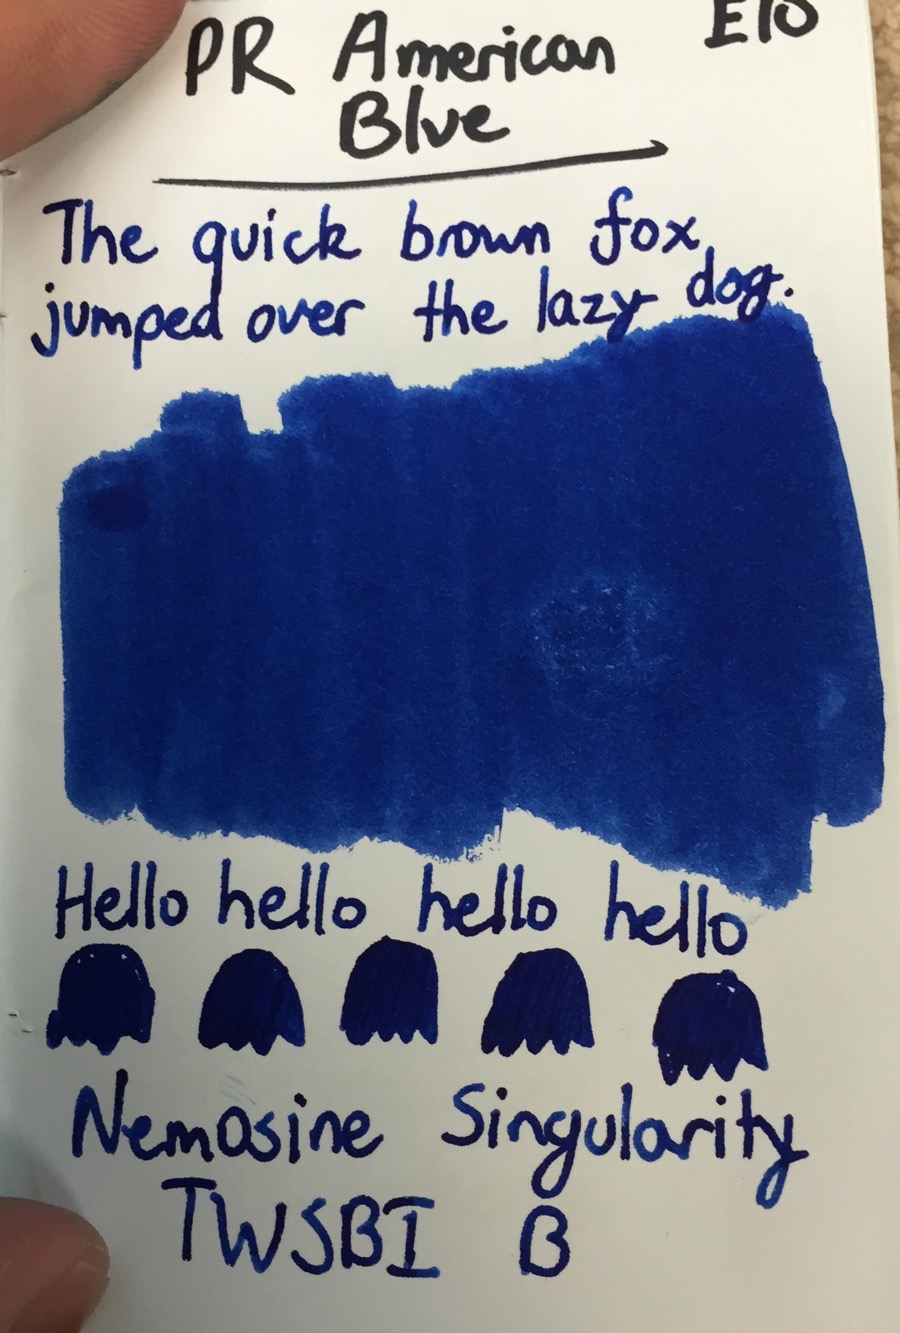 PR American E10
Blue
The quick brown fox
jumped over the lazy dog.
Hello hello hello hello
Nemosine Singularity
TWSBI B